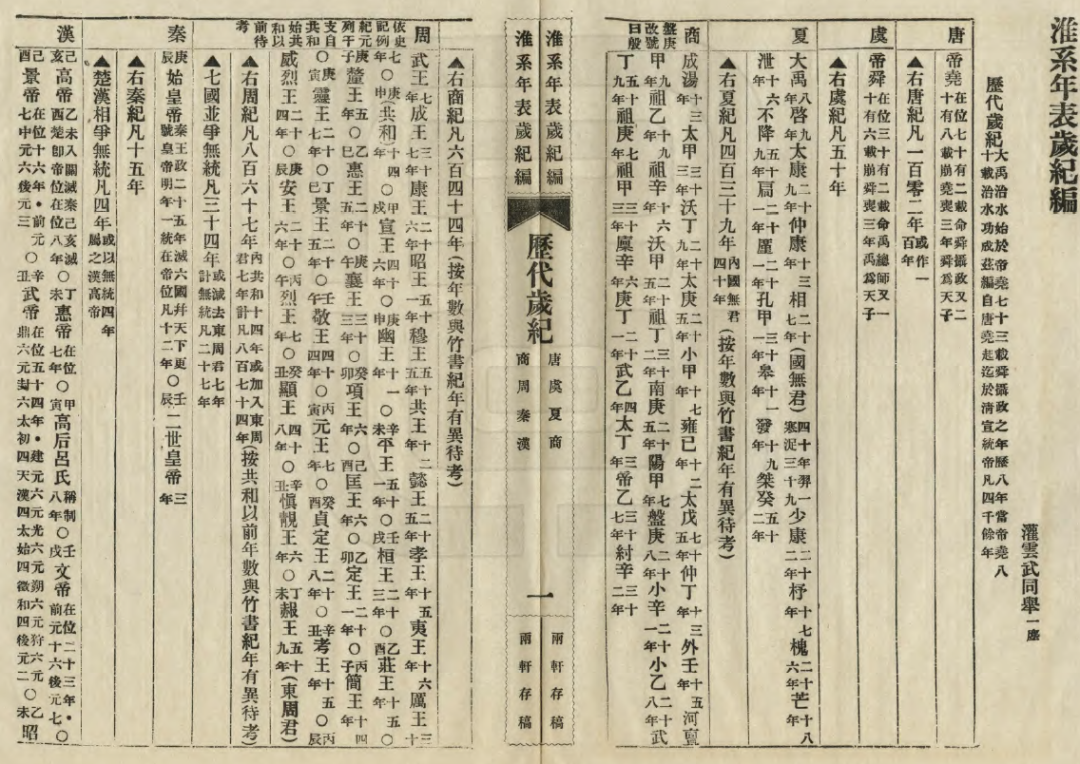 淮系年表歲紀編
灌雲武同舉一塵
歷代歲紀大禹治水始於帝堯七十三載舜攝政之年歷八年當帝堯八十載治水功成茲編自唐堯起迄於清宣統帝凡四千餘年
唐
帝堯在位七十有二載命舜攝政又二十有八載崩堯喪三年舜爲天子
▲右唐紀凡一百零二年或作一百年
虞
帝舜在位三十有二載命禹總師又一十有六載崩舜喪三年禹爲天子
▲右虞紀凡五十年
夏
大禹八年啓九年太康二十九年仲康十三年相二十七年(國無君)四十年羿一寒浞三十九少康二十二年杼十七年槐二十六年芒十八年
泄十六年不降五十九年扃二十一年廑二十一年孔甲三十一年皋十一年發十九年桀癸五十二年
▲右夏紀凡四百三十九年內國無君四十年(按年數與竹書紀年有異待考)
商
盤庚改號曰殷
成湯十三年太甲三十三年沃丁二十九年太庚二十五年小甲十七年雍已十二年太戊七十五年仲丁十三年外壬十五年河亶
甲九年祖乙十九年祖辛十六年沃甲二十五年祖丁三十二年南庚二十五年陽甲七年盤庚二十八年小辛二十一年小乙二十八年武
丁五十九年祖庚七年祖甲三十三年廩辛六年庚丁二十一年武乙四年太丁三年帝乙三十七年紂辛三十二年
淮系年表歲紀編
歷代歲紀
唐虞夏商
商周秦漢
一
兩軒存稿
兩軒存稿
淮系年表歲紀編
▲右商紀凡六百四十四年(按年數與竹書紀年有異待考)
周
依史記例紀元列干支自共和始共和以前待考
武王七年成王三十七年康王二十六年昭王五十一年穆王五十五年共王十二年懿王二十五年孝王十五年夷王十六年厲王三十
七年○庚申(共和)十四年○甲戌宣王四十六年○庚申幽王十一年○辛未平王五十一年○壬戌桓王二十三年○乙酉莊王十五年○
庚子釐王五年○乙巳惠王二十五年○庚午襄王三十三年○癸卯項王六年○己酉匡王六年○乙卯定王二十一年○丙子簡王十四年
○庚寅靈王二十七年○丁巳景王二十五年○壬午敬王四十四年○丙寅元王七年○癸酉貞定王二十八年○辛丑考王十五年○丙辰
威烈王二十四年○庚辰安王二十六年○丙午烈王七年○癸丑顯王四十八年○辛丑愼靚王六年○丁未赧王五十九年(東周君)
▲右周紀凡八百六十七年內共和十四年或加入東周君七年計凡八百七十四年(按共和以前年數與竹書紀年有異待考)
▲七國並爭無統凡三十四年或滅去東周君七年計無統凡二十七年
秦
庚辰始皇帝秦王政二十五年滅六國幷天下更號皇帝明年一統在帝位凡十二年○壬辰二世皇帝三年
▲右秦紀凡十五年
▲楚漢相爭無統凡四年或以無統四年屬之漢高帝
漢
己亥高帝乙未入關滅秦己亥滅西楚卽帝位在位八年○丁未惠帝在位七年○甲寅高后呂氏稱制八年○壬戌文帝在位二十三年・前元十六後元七○乙
酉景帝在位十六年・前元七中元六後元三○辛丑武帝在位五十四年・建元六元光六元朔六元狩六元鼎六元封六太初四天漢四太始四徵和四後元二○乙未昭